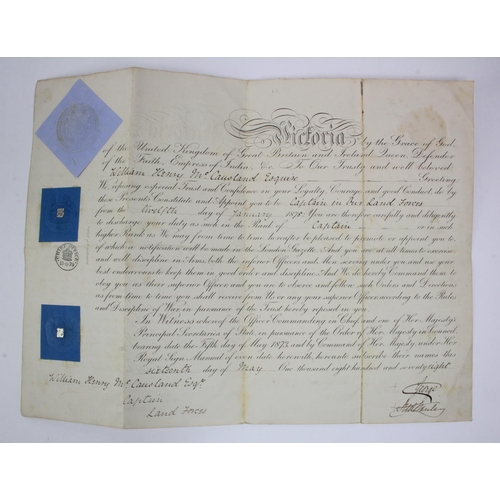 Victoria by the Grace of God,
of the United Kingdom of Great Britain and Ireland, Queen, Defender
of the Faith, Empress of India &c. To Our Trusty and well beloved
William Henry McCausland Esquire Greeting
We reposing especial Trust and Confidence in your Loyalty, Courage and good Conduct, do by
these Presents Constitute and Appoint you to be Captain in Our Land Forces
from the Twelfth day of January 1878. You are therefore carefully and diligently
to discharge your duty as such in the Rank of Captain or in such
higher Rank as We may from time to time hereafter be pleased to promote or appoint you to,
of which a notification will be made in the London Gazette. And you are at all times to exercise
and well discipline in Arms, both the inferior Officers and Men serving under you and use your
best endeavours to keep them in good order and discipline. And We do hereby Command them to
obey you as their superior Officer and you to observe and follow such Orders and Directions
as from time to time you shall receive from Us or any your superior Officer according to the Rules
and Discipline of War, in pursuance of the Trust hereby reposed in you.
In Witness whereof the Officer Commanding in Chief and one of Her Majesty's
Principal Secretaries of State, in pursuance of the Order of Her Majesty in Council,
bearing date the Fifth day of May 1873, and by Command of Her Majesty under Her
Royal Sign Manual of even date herewith, hereunto subscribe their names this
sixteenth day of May, One thousand eight hundred and seventy eight
William Henry McCausland Esqre
Captain
Land Forces
George